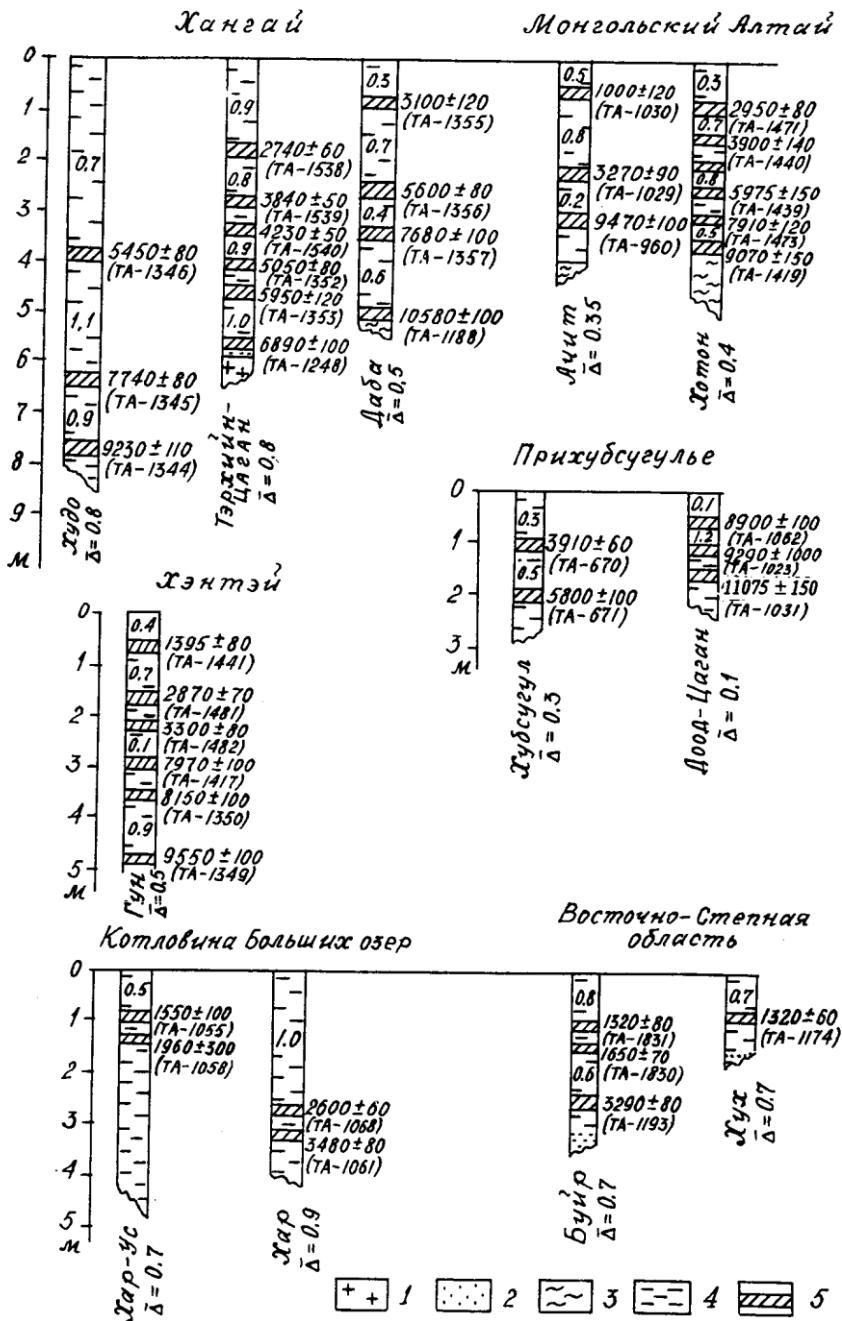 Хангай
Монгольский Алтай
0
1
2
3
4
5
6
7
8
9
м
0.7
5450±80
(ТА-1346)
1,1
7740±80
(ТА-1345)
0.9
9230±110
(ТА-1344)
Худо
Δ̄=0.8
0.9
2740±60
(ТА-1538)
0.8
3840±50
(ТА-1539)
4230±50
(ТА-1540)
0.9
5050±80
(ТА-1352)
5950±120
(ТА-1353)
1.0
6890±100
(ТА-1248)
Тэрхийн-
Цаган
Δ̄=0,8
0.3
3100±120
(ТА-1355)
0.7
5600±80
(ТА-1356)
0.4
7680±100
(ТА-1357)
0.6
10580±100
(ТА-1188)
Даба
Δ̄=0,5
0.5
1000±120
(ТА-1030)
0.8
3270±90
(ТА-1029)
0.2
9470±100
(ТА-960)
Ачит
Δ̄=0.35
0.3
2950±80
(ТА-1471)
0.7
3900±140
(ТА-1440)
0.8
5975±150
(ТА-1439)
7910±120
(ТА-1473)
0.5
9070±150
(ТА-1419)
Хотон
Δ̄=0.4
Прихубсугулье
0
1
2
3
м
0.3
3910±60
(ТА-670)
0.5
5800±100
(ТА-671)
Хубсугул
Δ̄=0.3
0.1
8900±100
(ТА-1062)
1.2
9290±1000
(ТА-1023)
11075±150
(ТА-1031)
Доод-Цаган
Δ̄=0.1
Хэнтэй
0
1
2
3
4
5
м
0.4
1395±80
(ТА-1441)
0.7
2870±70
(ТА-1481)
3300±80
(ТА-1482)
0.1
7970±100
(ТА-1417)
8150±100
(ТА-1350)
0.9
9550±100
(ТА-1349)
Гун
Δ̄=0,5
Котловина Больших озер
0
1
2
3
4
5
м
0.5
1550±100
(ТА-1055)
1960±300
(ТА-1058)
Хар-Ус
Δ̄=0.7
1.0
2600±60
(ТА-1068)
3480±80
(ТА-1061)
Хар
Δ̄=0.9
Восточно-Степная
область
0.8
1320±80
(ТА-1831)
1650±70
(ТА-1830)
0.6
3290±80
(ТА-1193)
Буйр
Δ̄=0.7
0.7
1320±60
(ТА-1174)
Хух
Δ̄=0.7
1 2 3 4 5